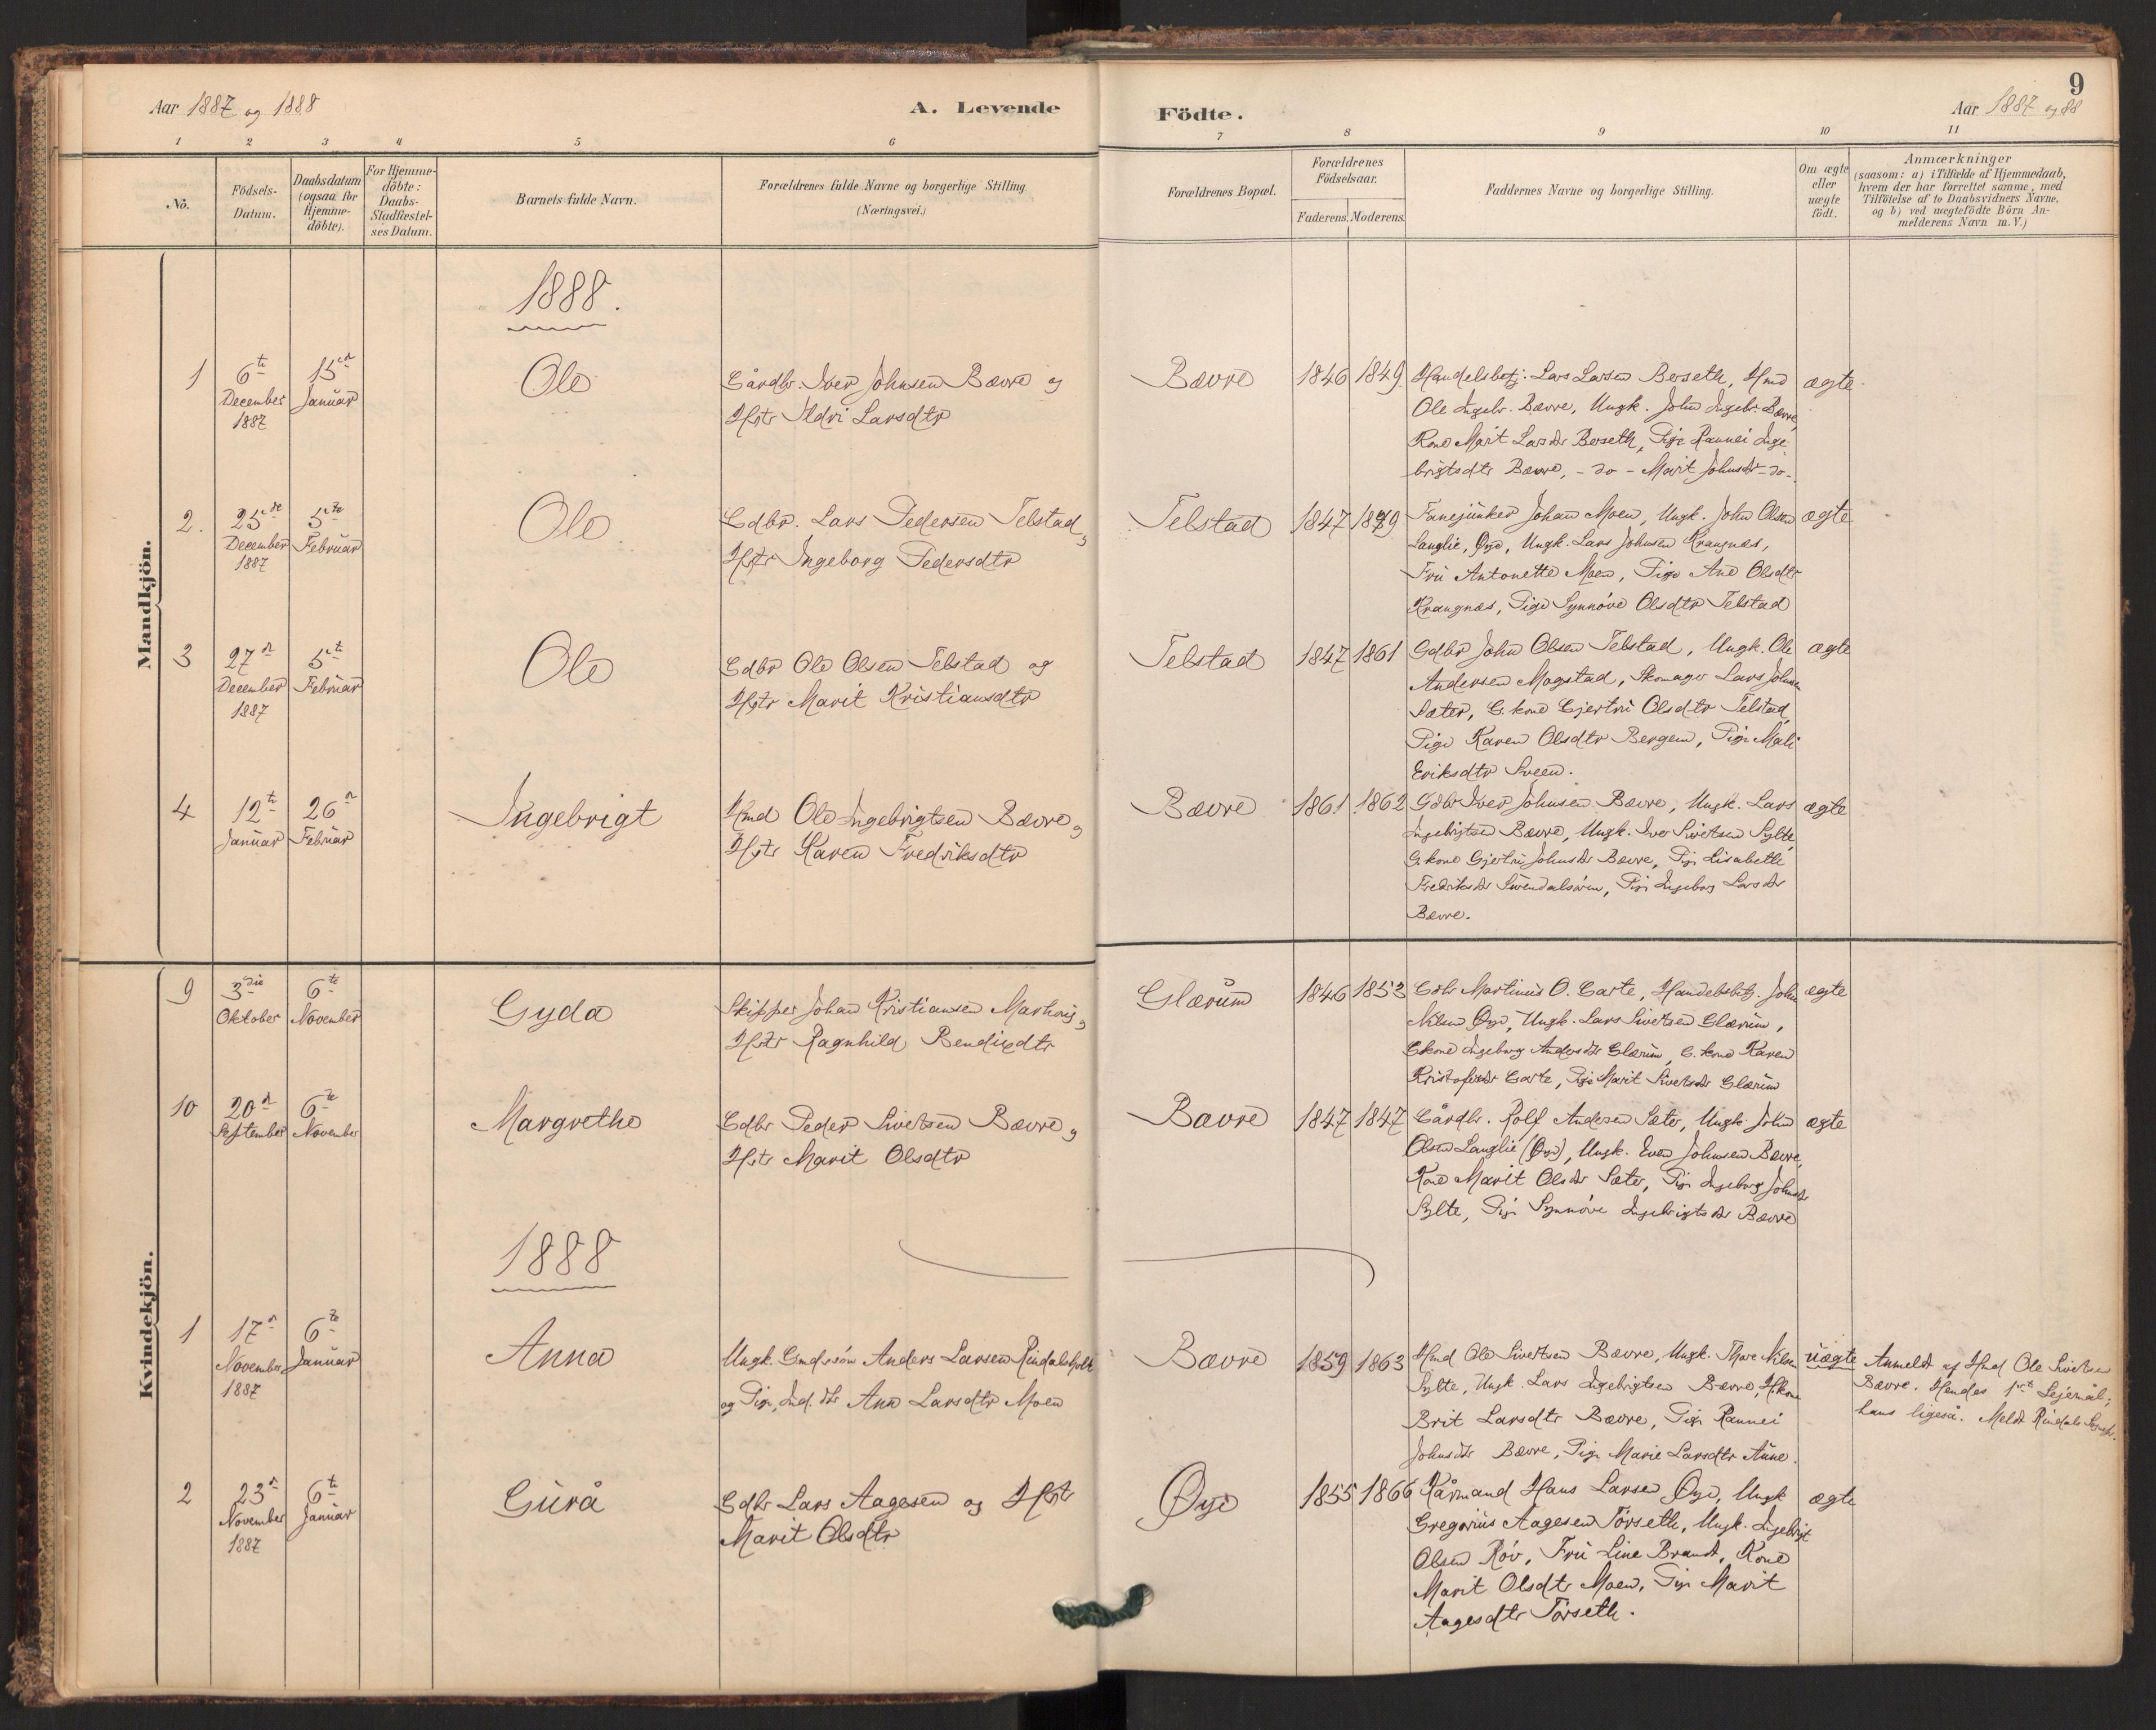 Aar 1887 og 1888
A. Levende
Födte.
9
Aar 1887 og 88
1 2 3 4 5 6 7 8 9 10 11
No.
Födsels-
Datum.
Daabsdatum
(ogsaa for
Hjemme-
döbte).
For Hjemme-
döbte:
Daabs-
Stadfæstel-
ses Datum.
Barnets fulde Navn.
Forældrenes fulde Navne og borgerlige Stilling.
(Næringsvei.)
Forældrenes Bopæl.
Forældrenes
Födselsaar.
Faderens. Moderens.
Faddernes Navne og borgerlige Stilling.
Om ægte
eller
uægte
födt.
Anmærkninger
(saasom: a) i Tilfælde af Hjemmedaab,
hvem der har forrettet samme, med
Tilföielse af to Daabsvidners Navne,
og b) ved uægtefödte Börn An-
melderens Navn m.V.)
Mandkjön.
1888.
1
6te
December
1887
15de
Januar
Ole
Gårdbr. Iver Johnsen Bævre og
Hstr Ildri Larsdtr
Bævre
1846
1849
Handelsbetj. Lars Larsen Berseth, Hmd
Ole Ingebr. Bævre, Ungk. John Ingebr. Bævre,
Kone Marit Larsdtr Berseth, Pige Rannei Inge-
brigtsdtr Bævre, - do - Marit Johnsdtr - do -.
ægte
2.
25de
December
1887
5te
Februar
Ole
Gdbr. Lars Pedersen Telstad og
Hstr Ingeborg Pedersdtr
Telstad
1847
1849
Fanejunker Johan Moen, Ungk. John Olsen
Langlie, Øye, Ungk. Lars Johnsen Krangnæs,
Fru Antonette Moen, Pige Ane Olsdtr
Krangnæs, Pige Synnöve Olsdtr Telstad
ægte
3
27de
December
1887
5te
Februar
Ole
Gdbr Ole Olsen Telstad og
Hstr Marit Kristiansdtr
Telstad
1847
1861
Gdbr John Olsen Telstad, Ungk. Ole
Andersen Mogstad, Skomager Lars Johnsen
Sæter, G.kone Gjertru Olsdtr Telstad,
Pige Karen Olsdtr Bergem, Pige Mali
Eriksdtr Sveen.
ægte
4
12te
Januar
26de
Februar
Ingebrigt
Hmd Ole Ingebrigtsen Bævre og
Hstr Karen Fredriksdtr
Bævre
1861
1862
Gdbr Iver Johnsen Bævre, Ungk. Lars
Ingebrigtsen Bævre, Ungk. Iver Sivertsen Sylte,
G.kone Gjertru Johnsdtr Bævre, Pige Lisabeth
Fredriksdtr Surendalsören, Pige Ingeborg Larsdtr
Bævre.
ægte
Kvindekjön.
9
3die
Oktober
6te
November
Gyda
Skipper Johan Kristiansen og
Hstr Ragnhild Bendixdtr
Glærum
1846
1853
Gdbr Martinus O. Garte, Handelsbetj. John
Nilsen Øye, Ungk. Lars Sivertsen Glærum,
Gkone Ingeborg Andersdtr Glærum, G.kone Karen
Kristofersdtr Garte, Pige Marit Sivertsdtr Glærum
ægte
10
20de
September
6te
November
Margrethe
Gdbr Peder Sivertsen Bævre og
Hstr Marit Olsdtr
Bævre
1847
1847
Gårdbr. Rolf Andersen Sæter, Ungk. John
Olsen Langlie (Øye), Ungk. Even Johnsen Bævre,
Kone Marit Olsdtr Sæter, Pige Ingeborg Johnsdtr
Sylte, Pige Synnöve Ingebrigtsdtr Bævre
ægte
1888
1
17de
November
1887
6te
Januar
Anna
Ungk. Gmdssön Anders Larsen Rindalsholt
og Pige, Ind. dtr Ane Larsdtr Moen
Bævre
1859
1863
Hmd Ole Sivertsen Bævre, Ungk. Thore Nilsen
Sylte, Ungk. Lars Ingebrigtsen Bævre, Hkone
Brit Larsdtr Bævre, Pige Rannei
Johnsdtr Bævre, Pige Marie Larsdtr Aune.
uægte
Anmeldt af Hmd Ole Sivertsen
Bævre. Hendes 1ste Lejermål;
hans ligeså. Meldt Rindals
2
23de
November
1887
6te
Januar
Gurå
Gdbr Lars Aagesen og Hstr
Marit Olsdtr
Øye
1855
1866
Kårmand Hans Larsen Øye, Ungk
Gregorius Aagesen Törseth, Ungk. Ingebrigt
Olsen Röv, Fru Line Brandt, Kone
Marit Olsdtr Moen, Pige Marit
Aagesdtr Törseth.
ægte